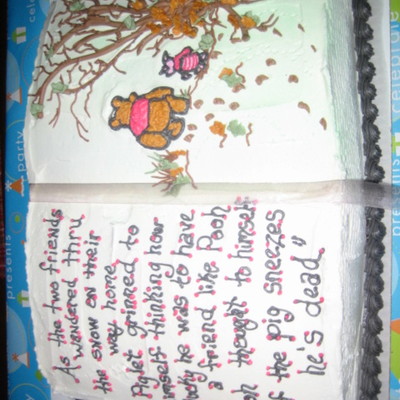 As the two friends
wandered thru
the snow on their
way home
Piglet grinned to
himself thinking how
lucky he was to have
a friend like Pooh
Pooh thought to himself
if the pig sneezes
he's dead."
presents
party
celebrate